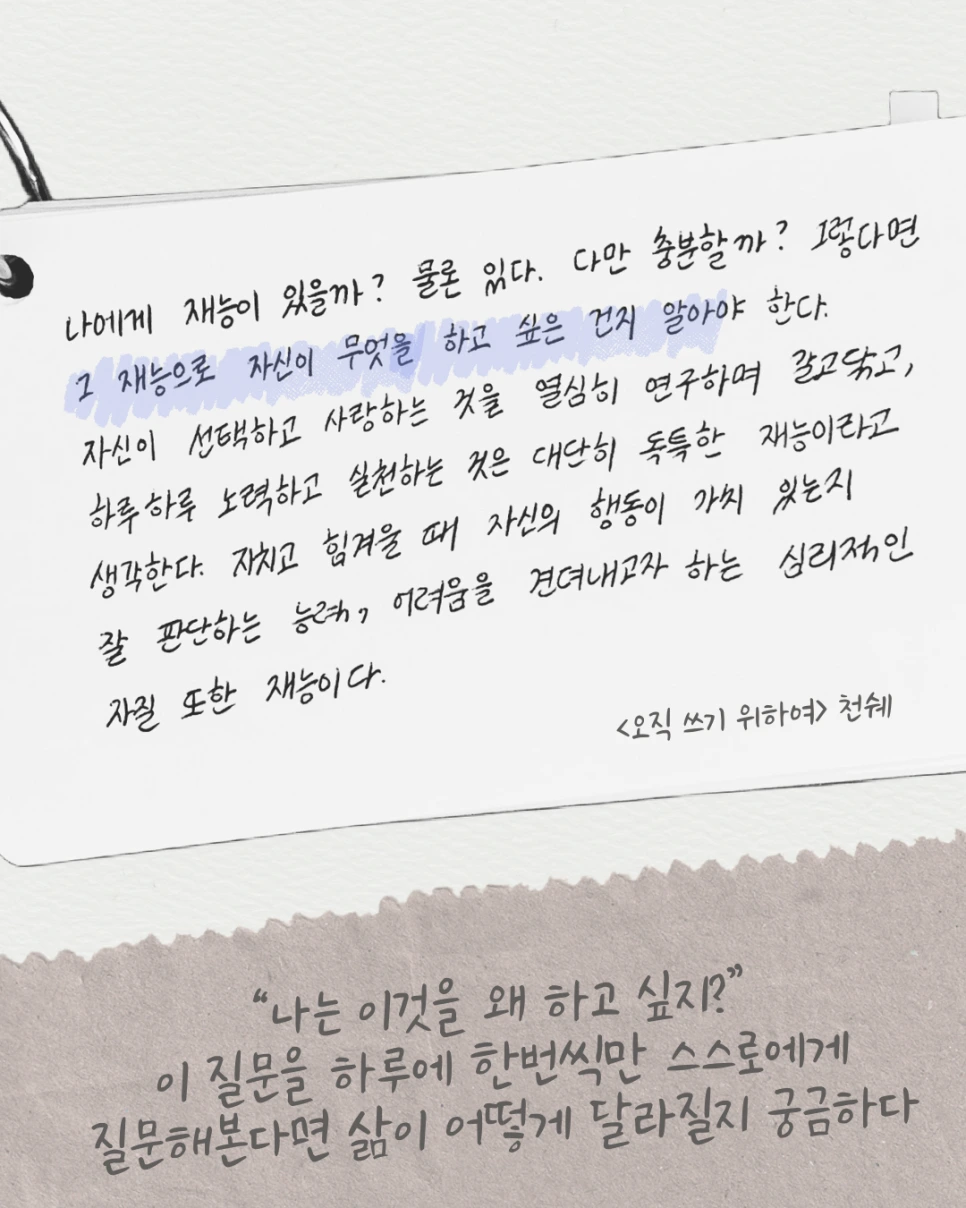 나에게 재능이 있을까? 물론 있다. 다만 충분할까? 그렇다면
그 재능으로 자신이 무엇을 하고 싶은 건지 알아야 한다.
자신이 선택하고 사랑하는 것을 열심히 연구하며 갈고닦고,
하루하루 노력하고 실천하는 것은 대단히 독특한 재능이라고
생각한다. 지치고 힘겨울 때 자신의 행동이 가치 있는지
잘 판단하는 능력, 어려움을 견뎌내고자 하는 심리적인
자질 또한 재능이다.
<오직 쓰기 위하여> 천쉐
“나는 이것을 왜 하고 싶지?”
이 질문을 하루에 한번씩만 스스로에게
질문해본다면 삶이 어떻게 달라질지 궁금하다